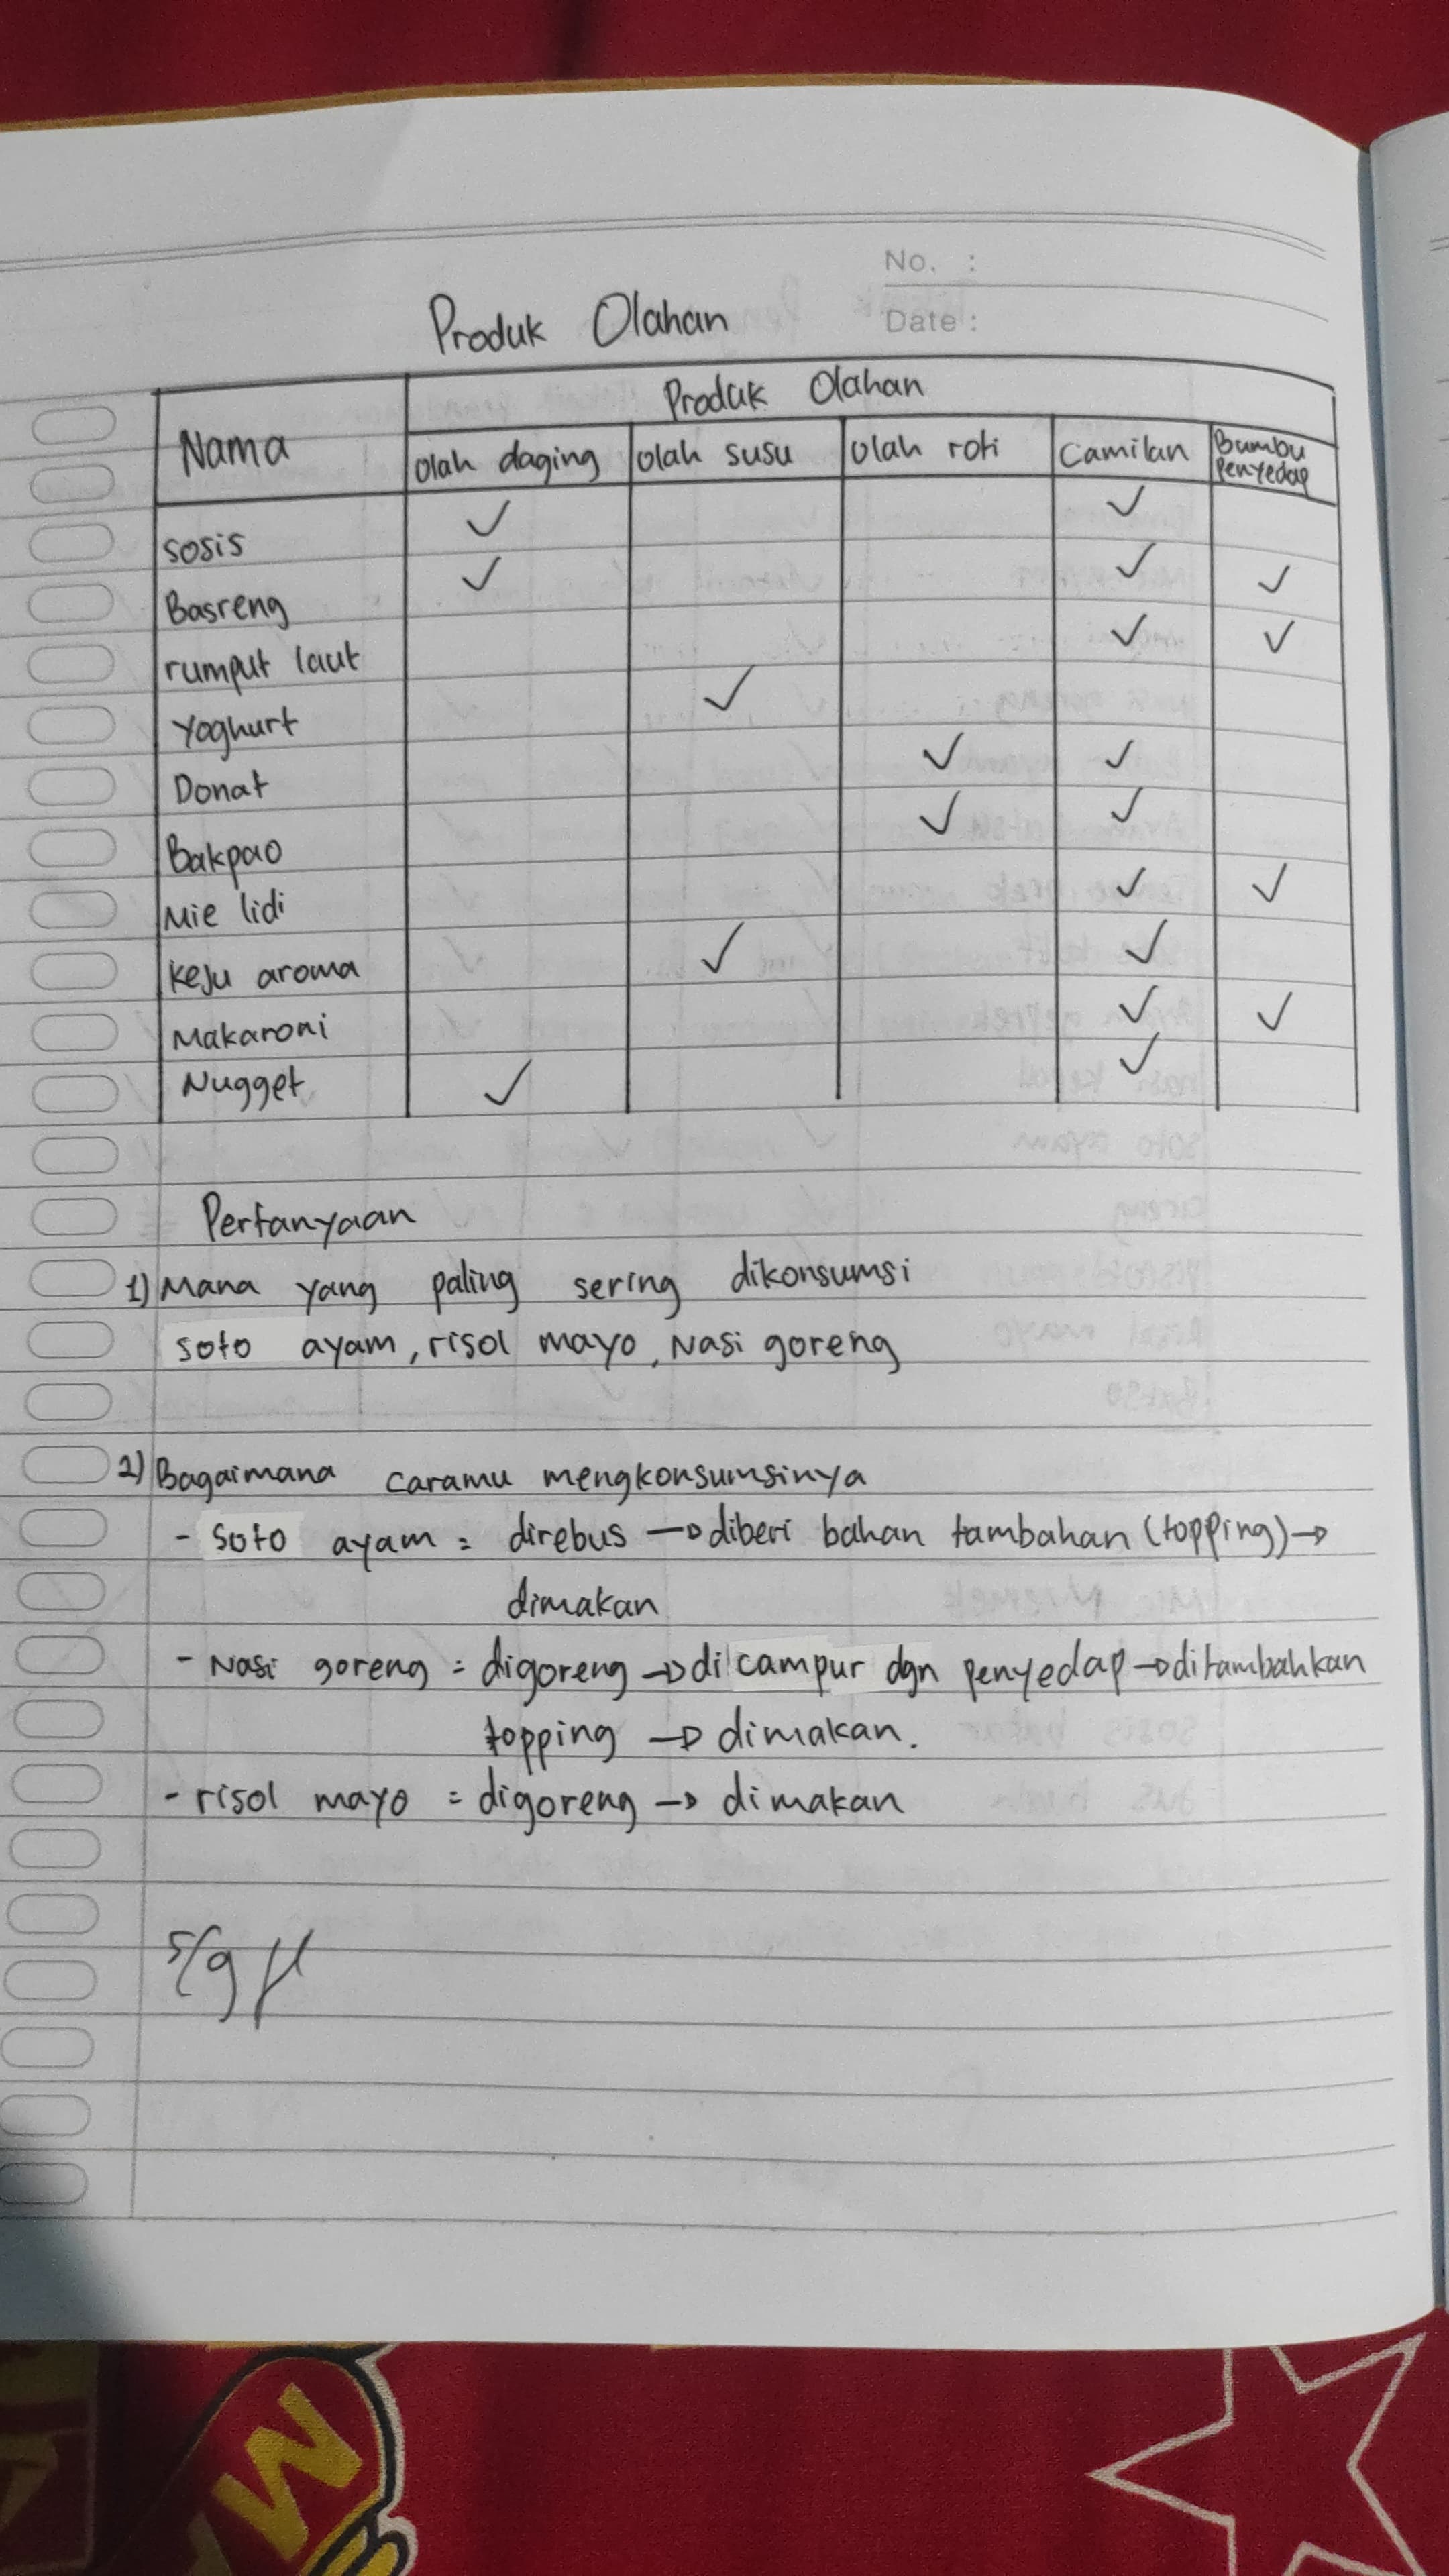 No. :
Date :
Produk Olahan
Nama
Produk Olahan
Olah daging olah susu Olah roti Camilan Bumbu Penyedap
sosis ✓ ✓
Basreng ✓ ✓ ✓
rumput laut ✓ ✓
Yoghurt ✓
Donat ✓ ✓
Bakpao ✓ ✓
Mie lidi ✓ ✓
keju aroma ✓ ✓
Makaroni ✓ ✓
Nugget ✓ ✓
Pertanyaan
1) Mana yang paling sering dikonsumsi
soto ayam, risol mayo, Nasi goreng
2) Bagaimana caramu mengkonsumsinya
- soto ayam = direbus → diberi bahan tambahan (topping) →
dimakan
- Nasi goreng = digoreng → dicampur dgn penyedap → ditambahkan
topping → dimakan.
- risol mayo = digoreng → dimakan